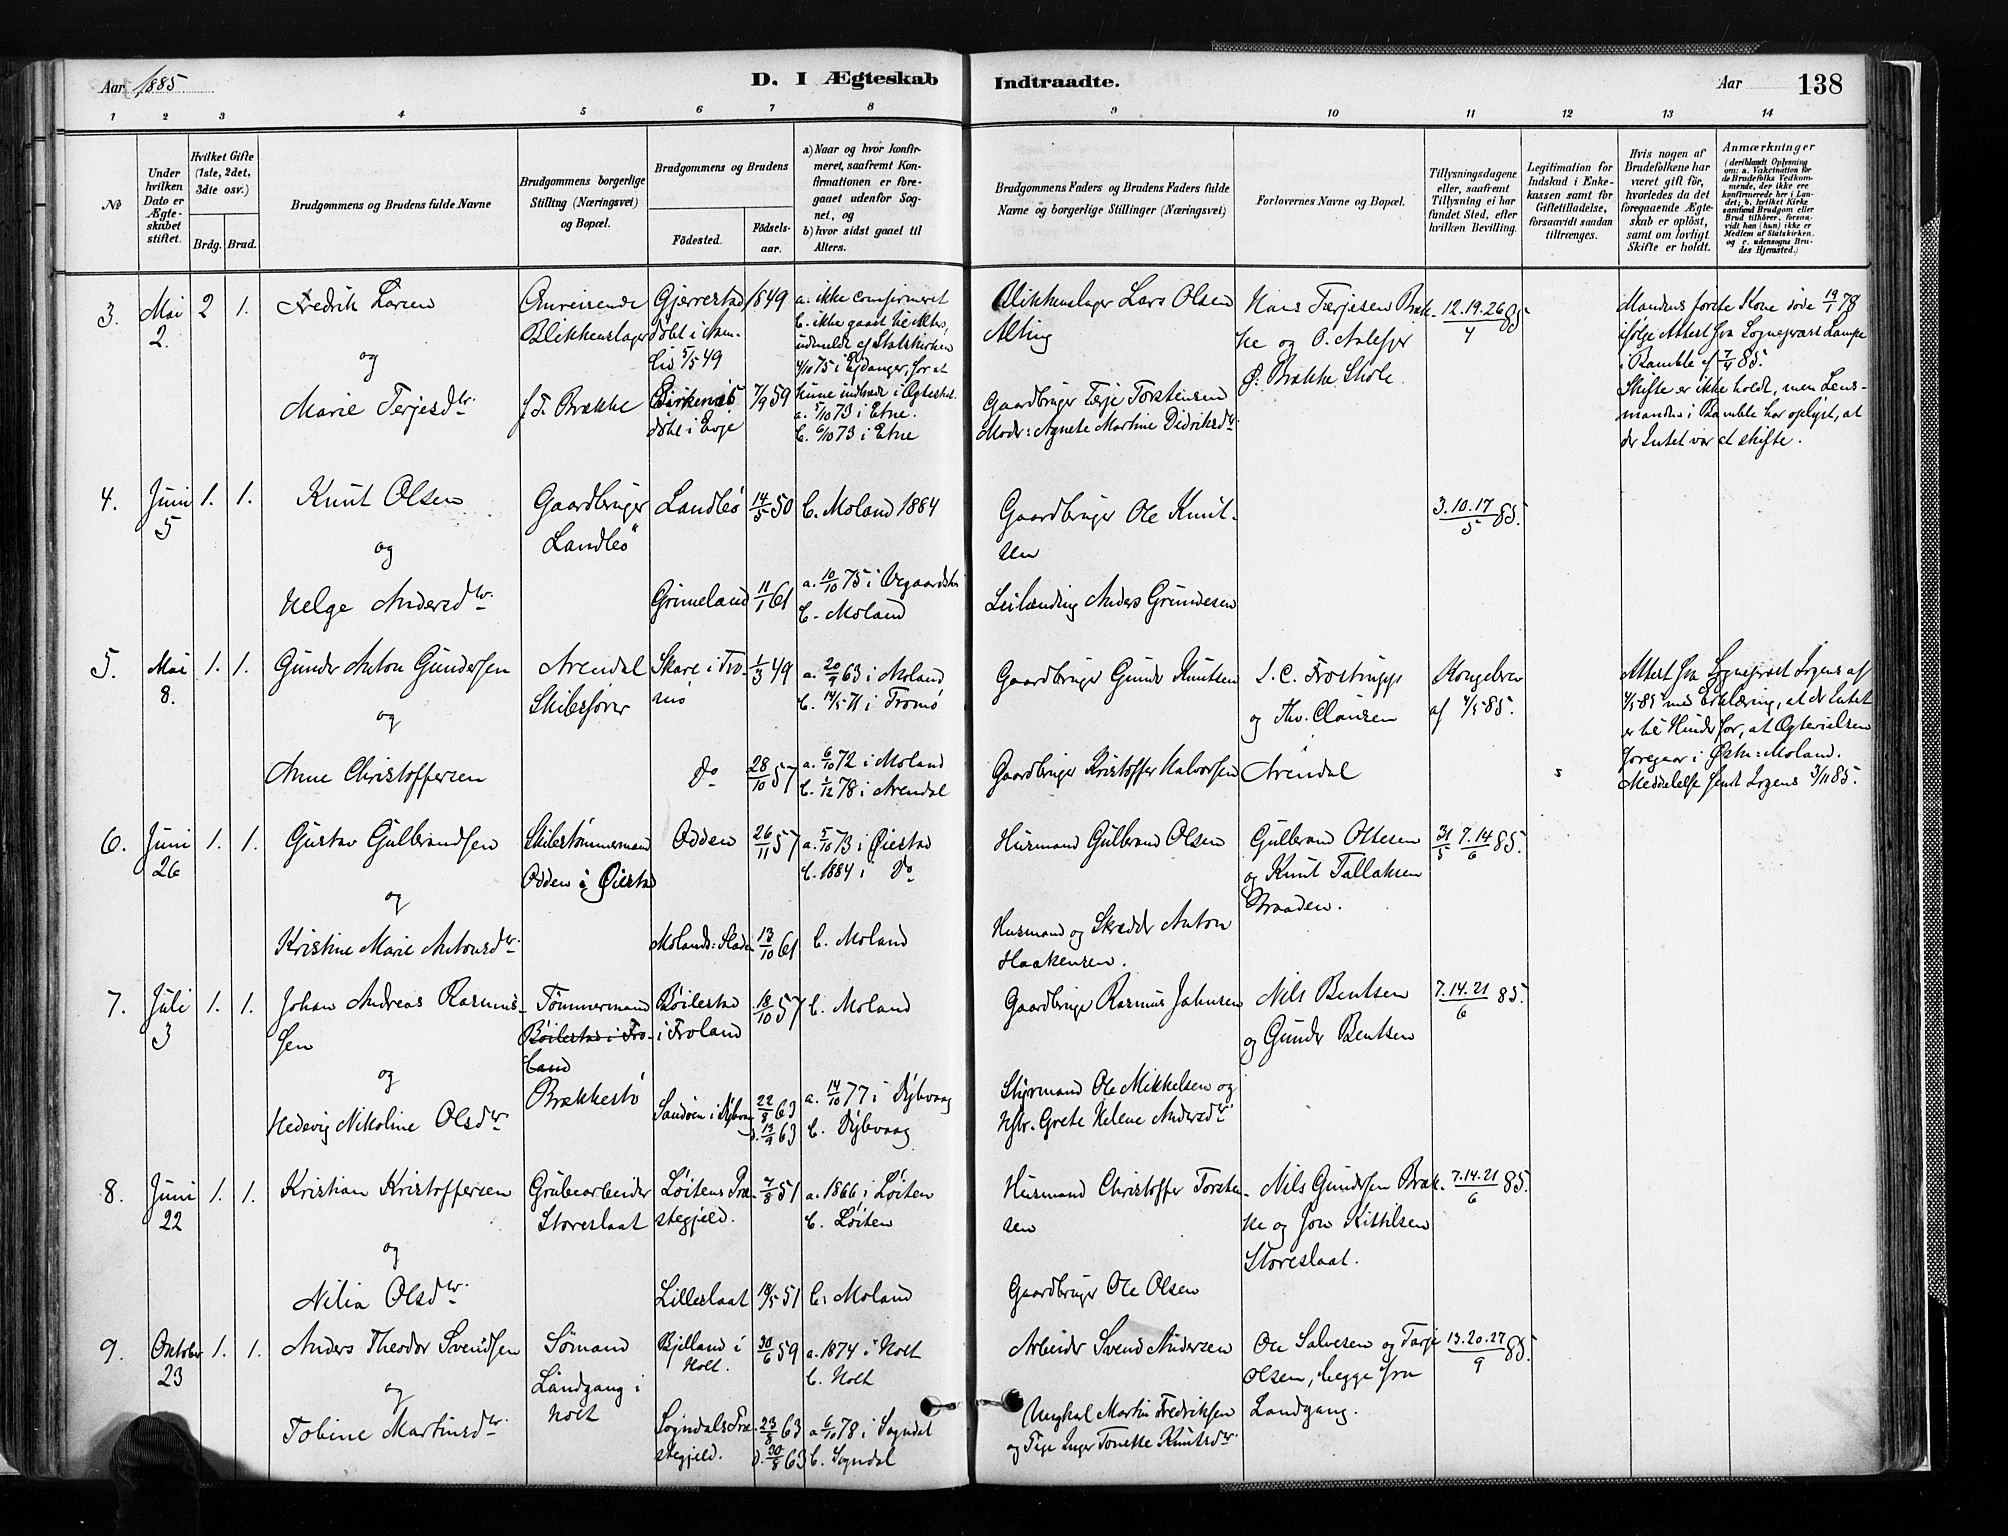 Aar 1885
D. I Ægteskab
Indtraadte.
Aar
138
1 2 3 4 5 6 7 8 9 10 11 12 13 14
No
Under hvilken Dato er Ægteskabet stiftet.
Hvilket Gifte (1ste, 2det, 3dte osv.)
Brdg. Brud.
Brudgommens og Brudens fulde Navne
Brudgommens borgerlige Stilling (Næringsvei) og Bopæl.
Brudgommens og Brudens
Födested.
Födsels-aar.
a) Naar og hvor konfirmeret, saafremt Konfirmationen er foregaaet udenfor Sognet, og
b) hvor sidst gaaet til Alters.
Brudgommens Faders og Brudens Faders fulde Navne og borgerlige Stillinger (Næringsvei)
Forlovernes Navne og Bopæl.
Tillysningsdagene eller, saafremt Tillysning ei har fundet Sted, efter hvilken Bevilling.
Legitimation for Indskud i Enkekassen samt for Giftetilladelse, forsaavidt saadan tiltrænges.
Hvis nogen af Brudefolkene har været gift för, hvorledes da det foregaaende Ægteskab er oplöst, samt om lovligt Skifte er holdt.
Anmærkninger (deriblandt Oplysning om: a. Vakcination for de Brudefolks Vedkommende, der ikke ere konfirmerede her i Landet; b. hvilket Kirkesamfund Brudgom eller Brud tilhörer, forsaavidt han (hun) ikke er Medlem af Statskirken, og c. udensogns Brudes Hjemsted.)
3. Mai 2. 2 1. Fredrik Larsen
og
Marie Terjesdtr.
Omreisende
Blikkenslager
f. T. Brække
Gjerrestad 1849
döbt i Aamlid 5/5 49
Birkenæs 7/9 59
döbt i Evje
a. ikke confirmeret
b. ikke gaaet til Alters,
udmeldt af Statskirken
4/10 75 i Eidanger, for at
kunne indtræde i Ægtesk.
a. 5/10 73 i Etne.
b. 6/10 73 i Etne
Blikkenslager Lars Olsen
Alting
Gaardbruger Terje Torstensen
Moder: Agnete Martine Didriksdtr.
Hans Terjesen Bræk-
ke og O. Aalefjær
Ø. Brække Skole.
12.19.26/4 85
Mandens forste Kone döde 19/1 78
ifölge Attest fra Sogneprest Lampe
i Bamble af 7/4 85.
Skifte er ikke holdt, men Lens-
manden i Bamble har oplyst, at
der Intet var at skifte.
4. Juni 5 1. 1. Knut Olsen
og
Helge Andersdtr.
Gaardbruger
Landleö
Landleö 14/5 50
Grimeland 11/1 61
b. Moland 1884
a. 10/10 75 i Vegaardshei
b. Moland
Gaardbruger Ole Knut-
sen
Leilænding Anders Grundesen
3.10.17/5 85.
5. Mai 8. 1. 1. Gunder Anton Gundersen
og
Anne Christoffersen
Arendal
Skibsförer
Skare i Tro-
mö
1/3 49
Do 28/10 57
a. 20/9 63 i Moland
b. 14/5 71 i Tromö
a. 6/10 72 i Moland
b. 1/12 78 i Arendal
Gaardbruger Gunder Knutsen
Gaardbruger Kristoffer Halvorsen
I. C. Frostrupp
og Thv. Clausen
Arendal
Kongebrev
af 4/5 85.
Attest fra Sogneprest Sogens af
4/5 85 med Erklæring, at der Intet
er til Hinder for, at Ægtevielsen
foregaar i Østre-Moland.
Meddelelse sendt Sogens 3/11 85.
6. Juni 26 1. 1. Gustav Gulbrandsen
og
Kristine Marie Antonsdtr.
Skibstömmermand
Odden i Øiestad
Odden 26/11 57
Molands: Staden 13/10 61
a. 5/10 73 i Øiestad
b. 1884 i Do
b. Moland
Husmand Gulbrand Olsen
Husmand og Skrædder Anton
Haakensen.
Gulbrand Ottesen
og Knut Tallaksen
Braaden.
31/5 7.14/6 85.
7. Juli 3 1. 1. Johan Andreas Rasmus-
sen
og
Hedevig Nikoline Olsdtr
Tömmermand
Böilestad i Fro-
land
Brækkestö
Böilestad
i Froland
18/10 57
Sandöen i Dybvaag 22/8 63
d. 13/9 63
b. Moland
a. 14/10 77 i Dybvaag
b. Dybvaag
Gaardbruger Rasmus Johnsen
Styrmand Ole Mikkelsen og
Hstr. Grete Helene Andersdtr
Nils Bentsen
og Gunder Bentsen
7.14.21/6 85.
8. Juni 22 1. 1. Kristian Kristoffersen
og
Nilia Olsdtr.
Grubearbeider
Storeslaat
Löitens Præ-
stegjeld.
7/8 51
Lilleslaat 18/5 51
a. 1866 i Löiten
b. Löiten
b. Moland
Husmand Christoffer Torsten-
sen
Gaardbruger Ole Olsen
Nils Gundersen Bræk-
ke og Jon Kittilsen
Storeslaat.
7.14.21/6 85.
9. Oktober 23 1. 1. Anders Theodor Svendsen
og
Tobine Martinsdtr.
Sömand
Landgang i
Holt
Bjelland i
Holt.
30/6 59
Sogndals Præ-
stegjeld.
23/8 63
d. 30/8 63
a. 1874 i Holt
b. Holt
a 6/10 78 i Sogndal
b. Sogndal
Arbeider Svend Andersen
Ungkarl Martin Fredriksen
og Pige Inger Tonette Knutsdtr.
Ole Salvesen og Tarje
Olsen, begge fra
Landgang.
13.20.27/9 85.